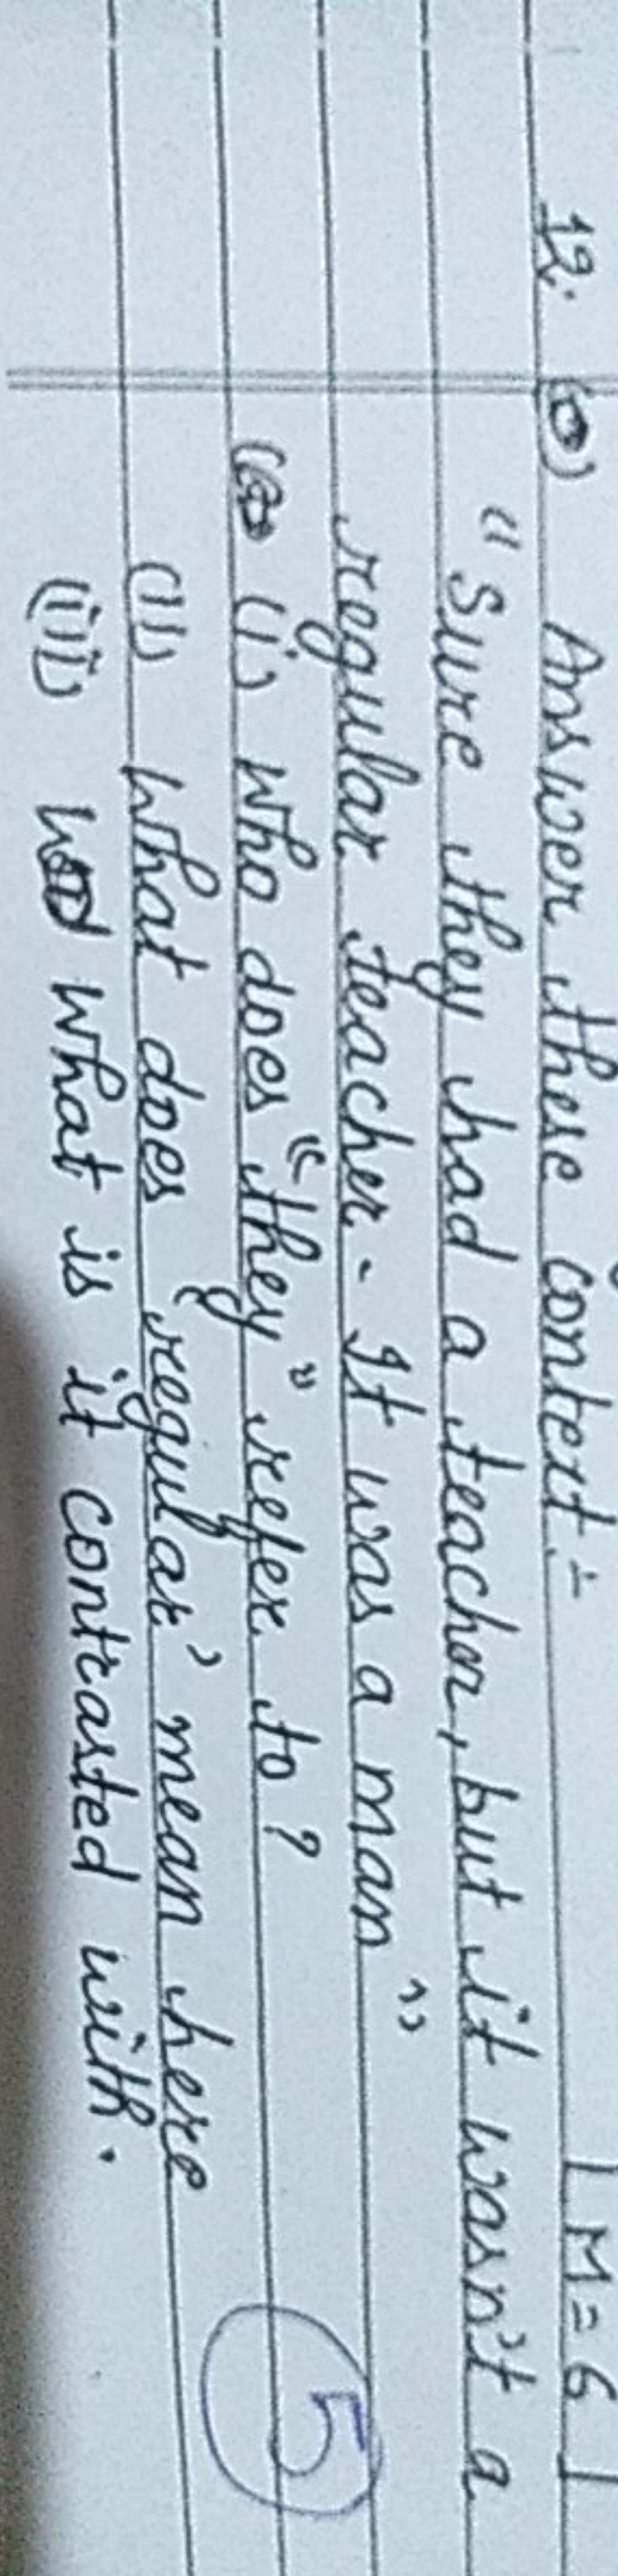 M = 6
12. Answer these context :-
"Sure they had a teacher, but it wasn't a
regular teacher - It was a man"
(i) Who does "they" refer to?
(ii) What does 'regular' mean here
(iii) What is it contrasted with.
5